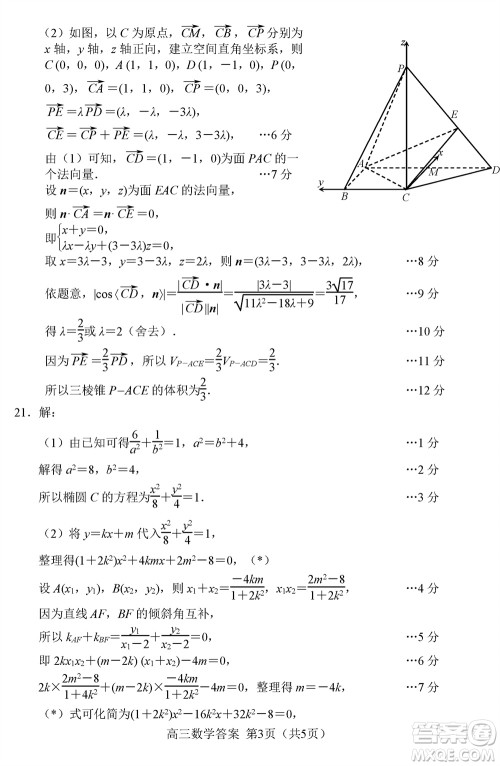 （2）如图，以 C 为原点，CM→，CB→，CP→ 分别为
x 轴，y 轴，z 轴正向，建立空间直角坐标系，则
C (0，0，0)，A (1，1，0)，D (1，－1，0)，P (0，
0，3)，CA→＝(1，1，0)，CD→＝(1，－1，0)，
PE→＝λPD→＝(λ，－λ，－3λ)，
CE→＝CP→＋PE→＝(λ，－λ，3－3λ)， …6 分
由（1）可知，CD→＝(1，－1，0)为面 PAC 的一
个法向量． …7 分
设 n＝(x，y，z)为面 EAC 的法向量，
则 n·CA→＝n·CE→＝0，
即{x＋y＝0，
λx－λy＋(3－3λ)z＝0，
取 x＝3λ－3，y＝3－3λ，z＝2λ，则 n＝(3λ－3，3－3λ，2λ)， …8 分
依题意，|cos⟨CD→，n⟩|＝|CD→·n|/|CD→||n|＝|3λ－3|/√(11λ²－18λ＋9)＝3√17/17， …9 分
得 λ＝2/3或 λ＝2（舍去）． …10 分
因为PE→＝2/3PD→，所以 V_{P－ACE}＝2/3V_{P－ACD}＝2/3． …11 分
所以三棱锥 P－ACE 的体积为2/3． …12 分
z
P
E
A
x
D
y
M
B
C
21．解：
（1）由已知可得6/a²＋1/b²＝1，a²＝b²＋4， …1 分
解得 a²＝8，b²＝4， …2 分
所以椭圆 C 的方程为x²/8＋y²/4＝1． …3 分
（2）将 y＝kx＋m 代入x²/8＋y²/4＝1，
整理得(1＋2k²)x²＋4kmx＋2m²－8＝0，(*)
设 A(x₁，y₁)，B(x₂，y₂)，则 x₁＋x₂＝－4km/1＋2k²，x₁x₂＝2m²－8/1＋2k²， …4 分
因为直线 AF，BF 的倾斜角互补，
所以 k_{AF}＋k_{BF}＝y₁/x₁－2＋y₂/x₂－2＝0， …5 分
即 2kx₁x₂＋(m－2k) (x₁＋x₂)－4m＝0， …6 分
2k×2m²－8/1＋4k²＋(m－2k) ×－4km/1＋2k²－4m＝0，整理得 m＝－4k． …7 分
（*）式可化简为(1＋2k²)x²－16k²x＋32k²－8＝0
高三数学答案 第3页（共5页）